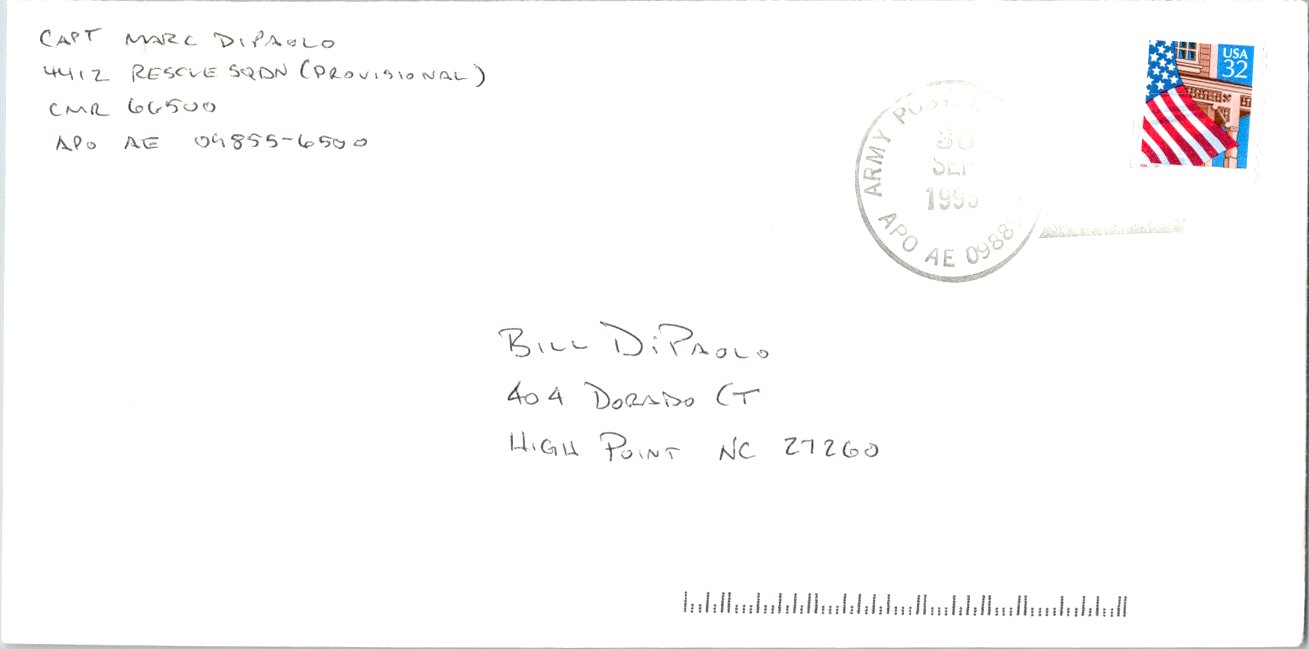 CAPT MARC DIPAOLO
4412 RESCUE SQDN (PROVISIONAL)
CMR 66500
APO AE 09855-6500
USA
32
ARMY POSTAL
30
SEP
APO AE 0988
BILL DIPAOLO
404 DORADO CT
HIGH POINT NC 27260